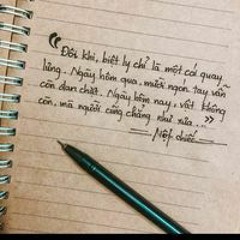 “Đôi khi, biệt ly chỉ là một cái quay
lưng. Ngày hôm qua, mười ngón tay vẫn
còn đan chặt. Ngày hôm nay, vật không
còn, mà người cũng chẳng như xưa...”